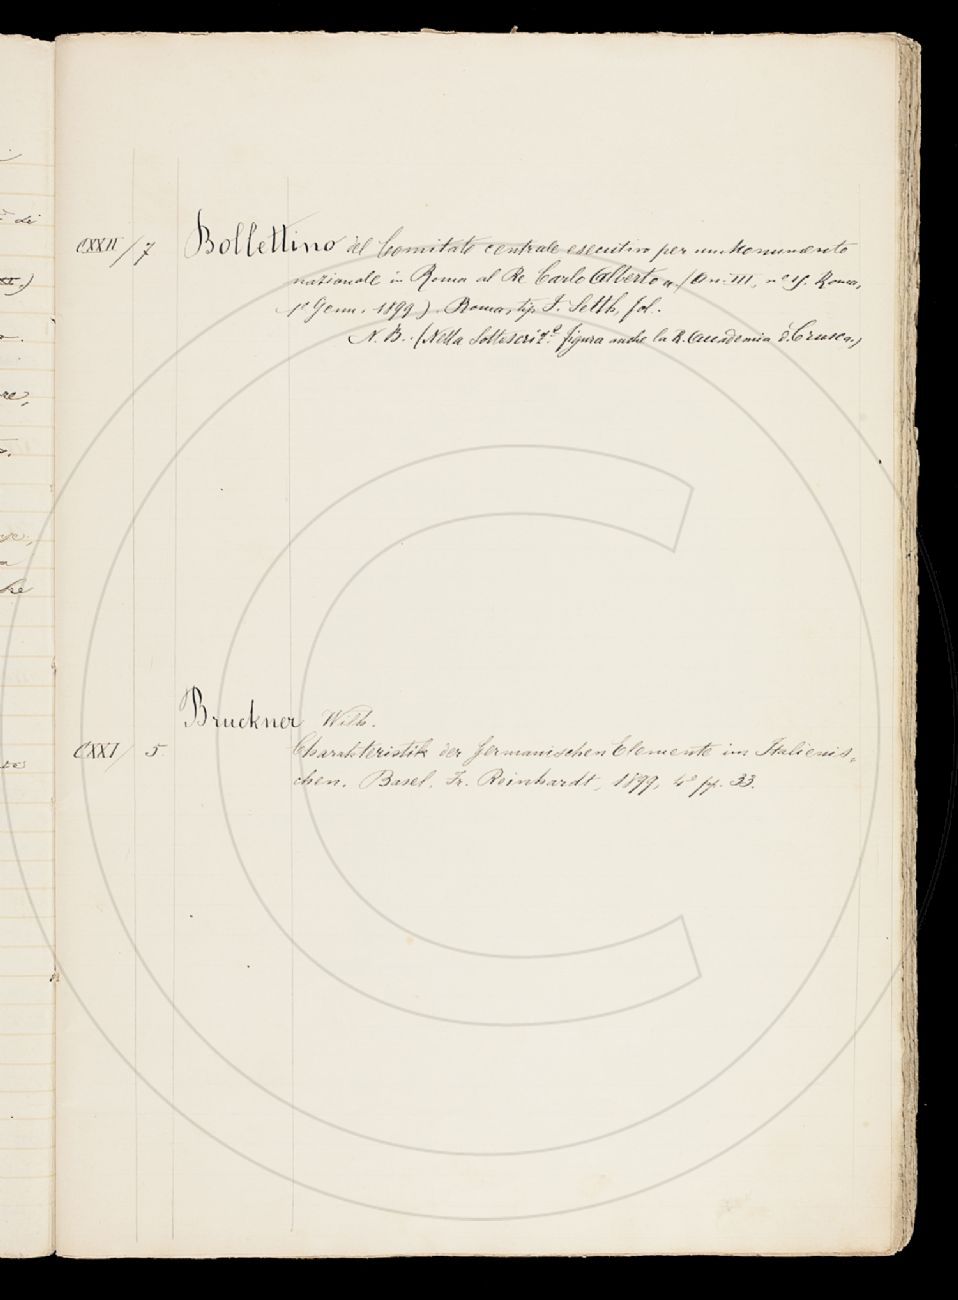 CXXII/7 Bollettino del Comitato centrale esecutivo per un Monumento
nazionale in Roma al Re Carlo Alberto. (An. III, nº Roma,
1º Genn. 1899). Roma, tip. F. Setth, fol.
N. B.: (Nella Sottoscriz.e figura anche la R. Accademia d. Crusca.)
Bruckner Wilh.
CXXI/5 Charakteristik der germanischen Elemente im Italienis-
chen. Basel, Fr. Reinhardt, 1899, 4º pp. 33.